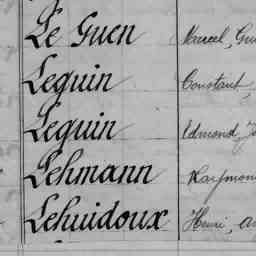 Le Guen Marcel, Gu
Leguin Constant,
Leguin Edmond, J
Lehmann Raymon
Lehuidoux Henri, Au